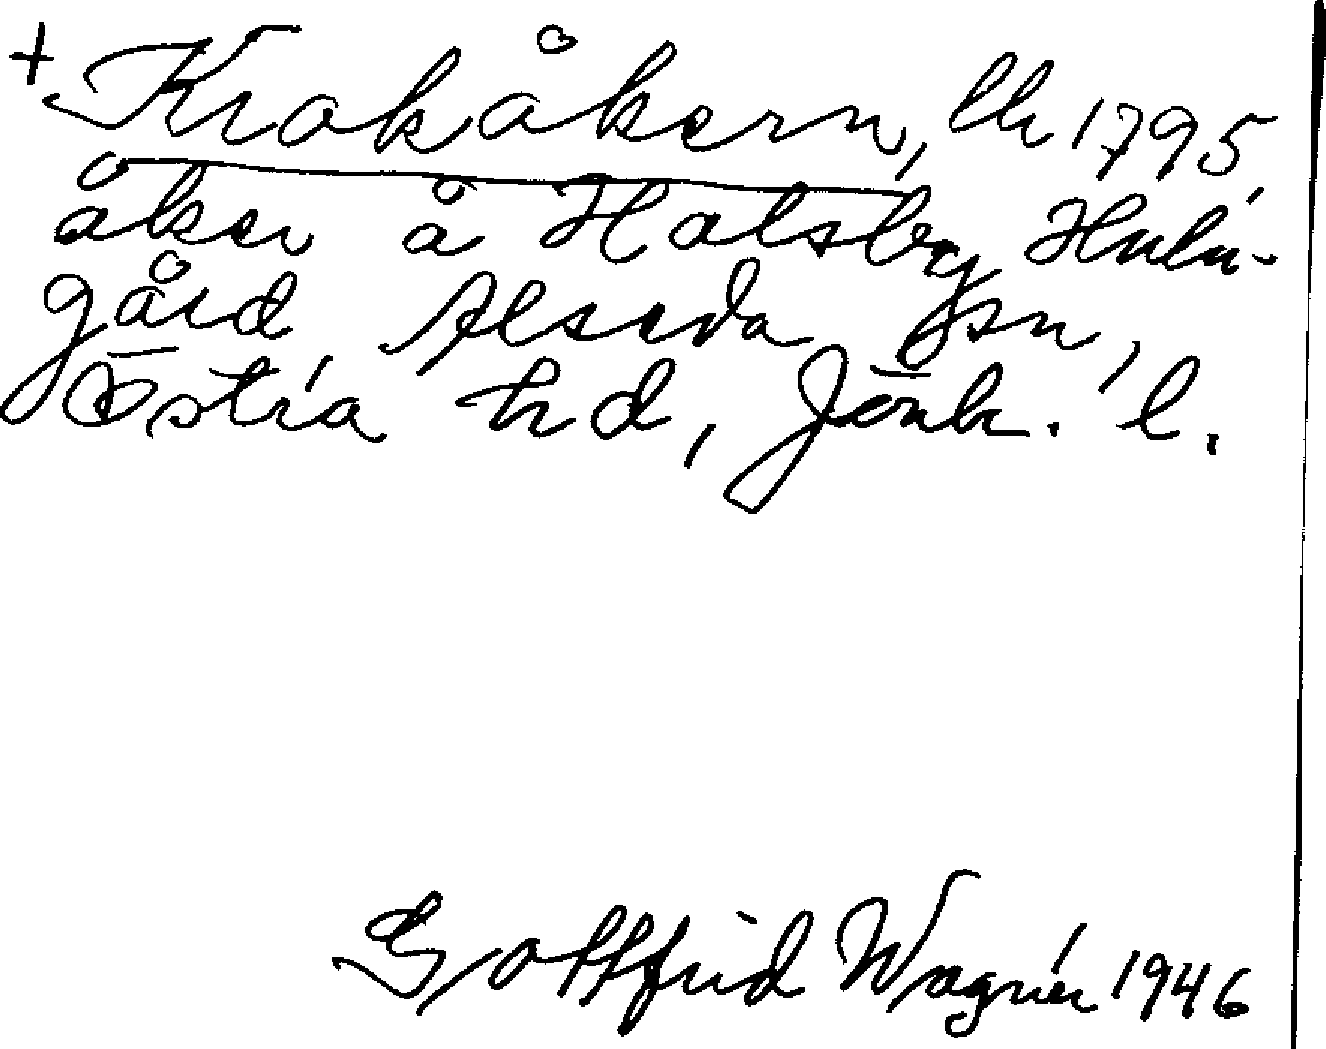 + Krokåkern, llr 1795,
åker å Holsby, Hulu-
gård Alseda sn,
Östra hd, Jönk. l.
Gottfrid Wagnér 1946